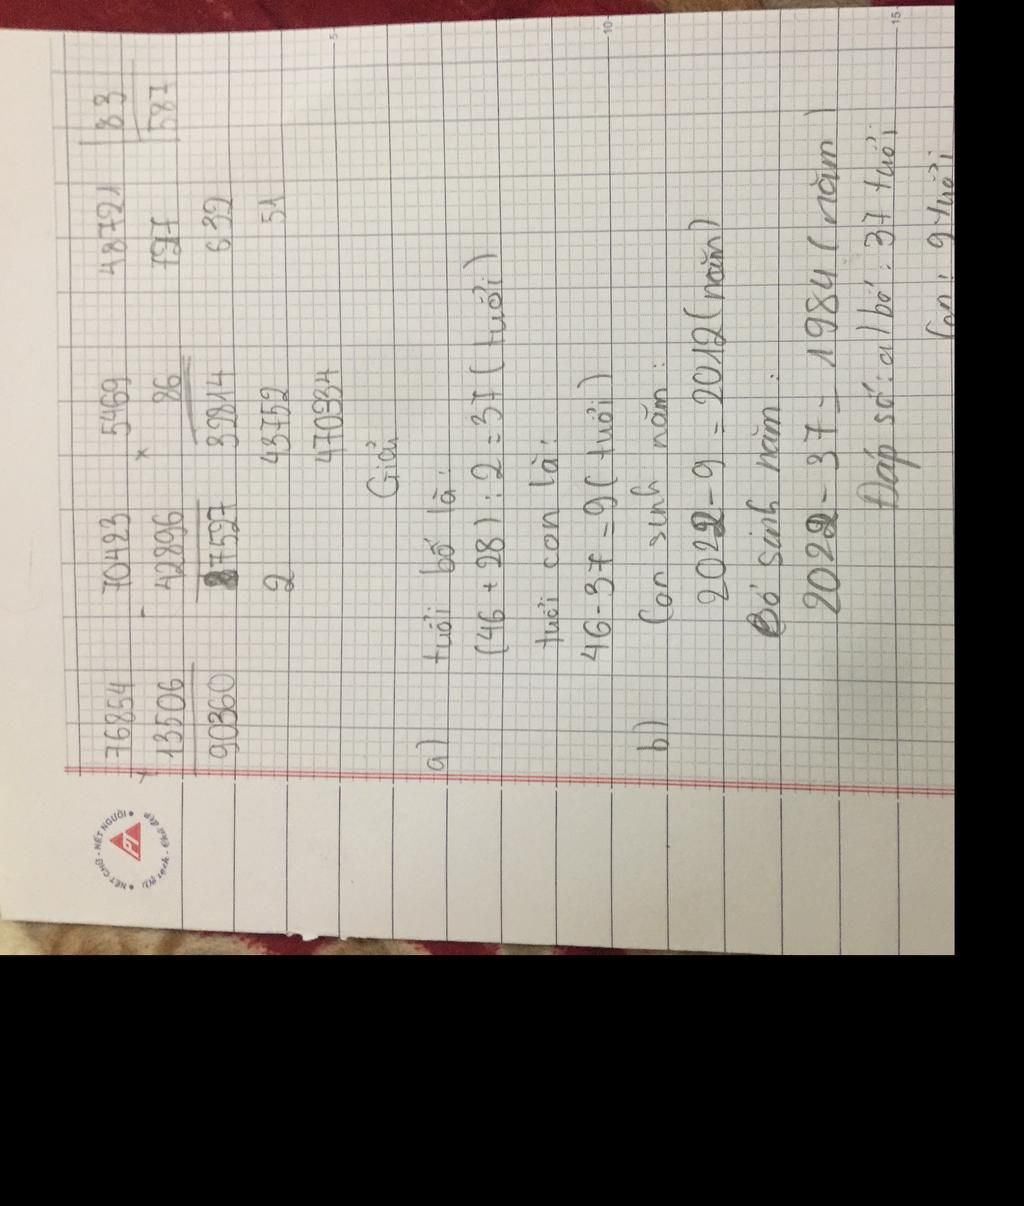 NÉT CHỮ - NẾT NGƯỜI
PT
5
10
15
76854 70423 5469 48721 83
+ 13506 - 42896 × 86 727 587
90360 27527 32814 632
2 43752 51
470334
Giải
a) tuổi bố là:
(46 + 28) : 2 = 37 (tuổi)
tuổi con là:
46 - 37 = 9 (tuổi)
b) Con sinh năm:
2022 - 9 = 2012 (năm)
Bố sinh năm:
2022 - 37 = 1984 (năm)
Đáp số: a) bố: 37 tuổi
Con: 9 tuổi